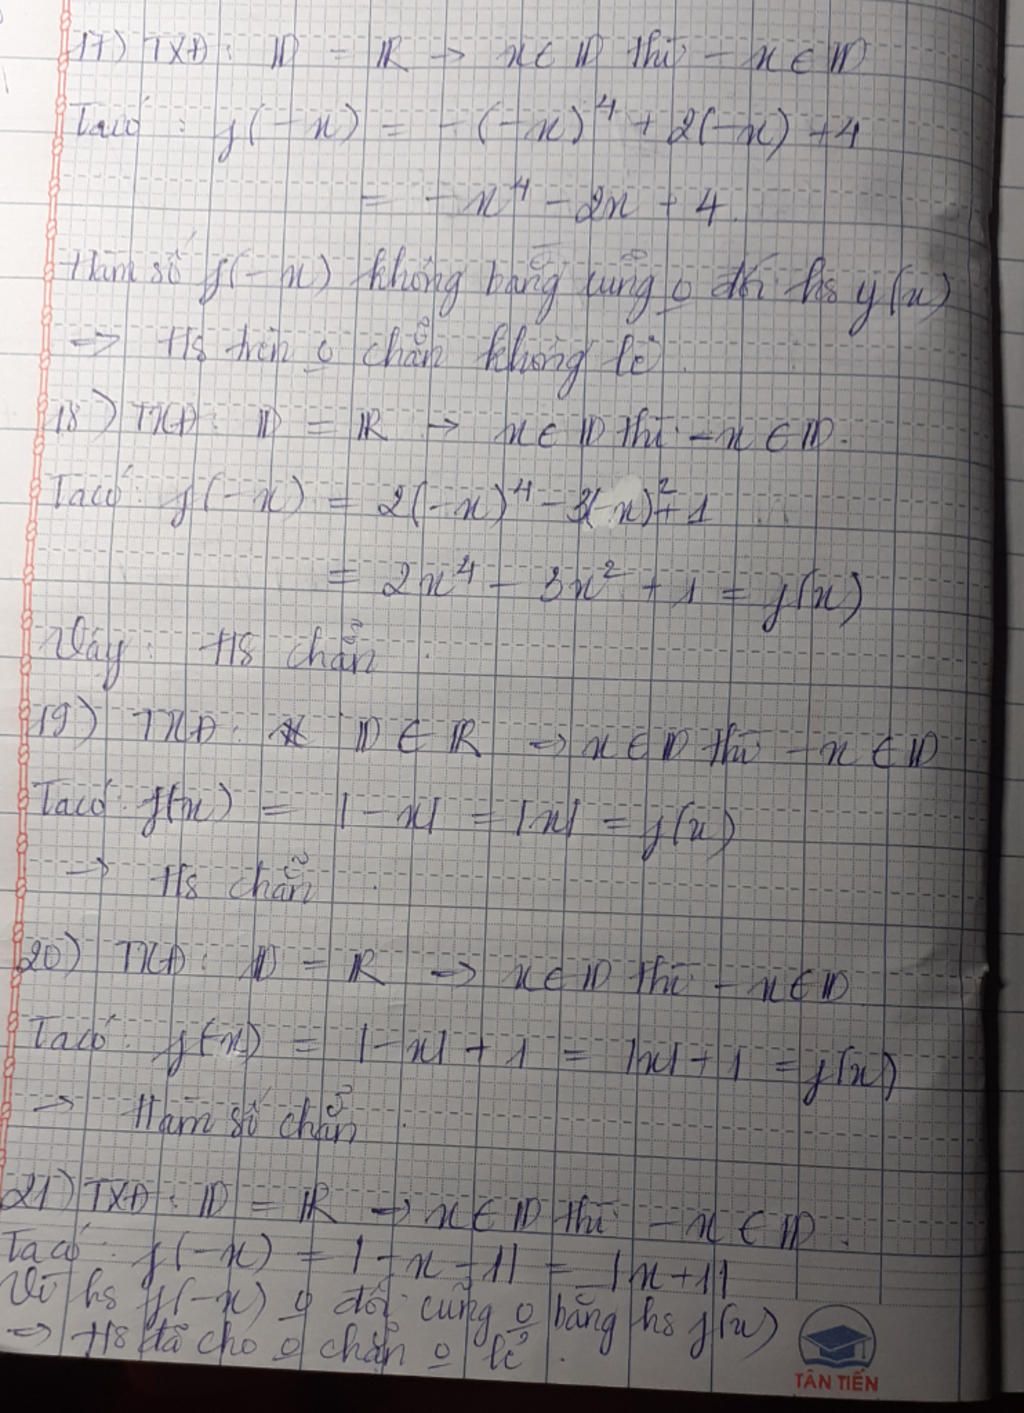 17) TXĐ: D = R → x ∈ D thì -x ∈ D
Ta có: y(-x) = -(-x)⁴ + 2(-x) + 4
= -x⁴ - 2x + 4.
Hàm số y(-x) không bằng cũng o đối hs y(x)
=> Hs trên o chẵn không lẻ.
18) TXĐ: D = R → x ∈ D thì -x ∈ D.
Ta có: y(-x) = 2(-x)⁴ - 3(-x)² + 1
= 2x⁴ - 3x² + 1 = y(x)
Vậy: HS chẵn.
19) TXĐ: D ∈ R => x ∈ D thì -x ∈ D
Ta có: y(-x) = |-x| = |x| = y(x)
→ Hs chẵn.
20) TXĐ: D = R → x ∈ D thì -x ∈ D
Ta có: y(-x) = |-x| + 1 = |x| + 1 = y(x)
→ Hàm số chẵn.
21) TXĐ: D = R → x ∈ D thì -x ∈ D.
Ta có: y(-x) = |-x-1| = |x+1|
Vì hs y(-x) o đối cũng o bằng hs y(x)
=> Hs đã cho o chẵn o lẻ.
TÂN TIẾN